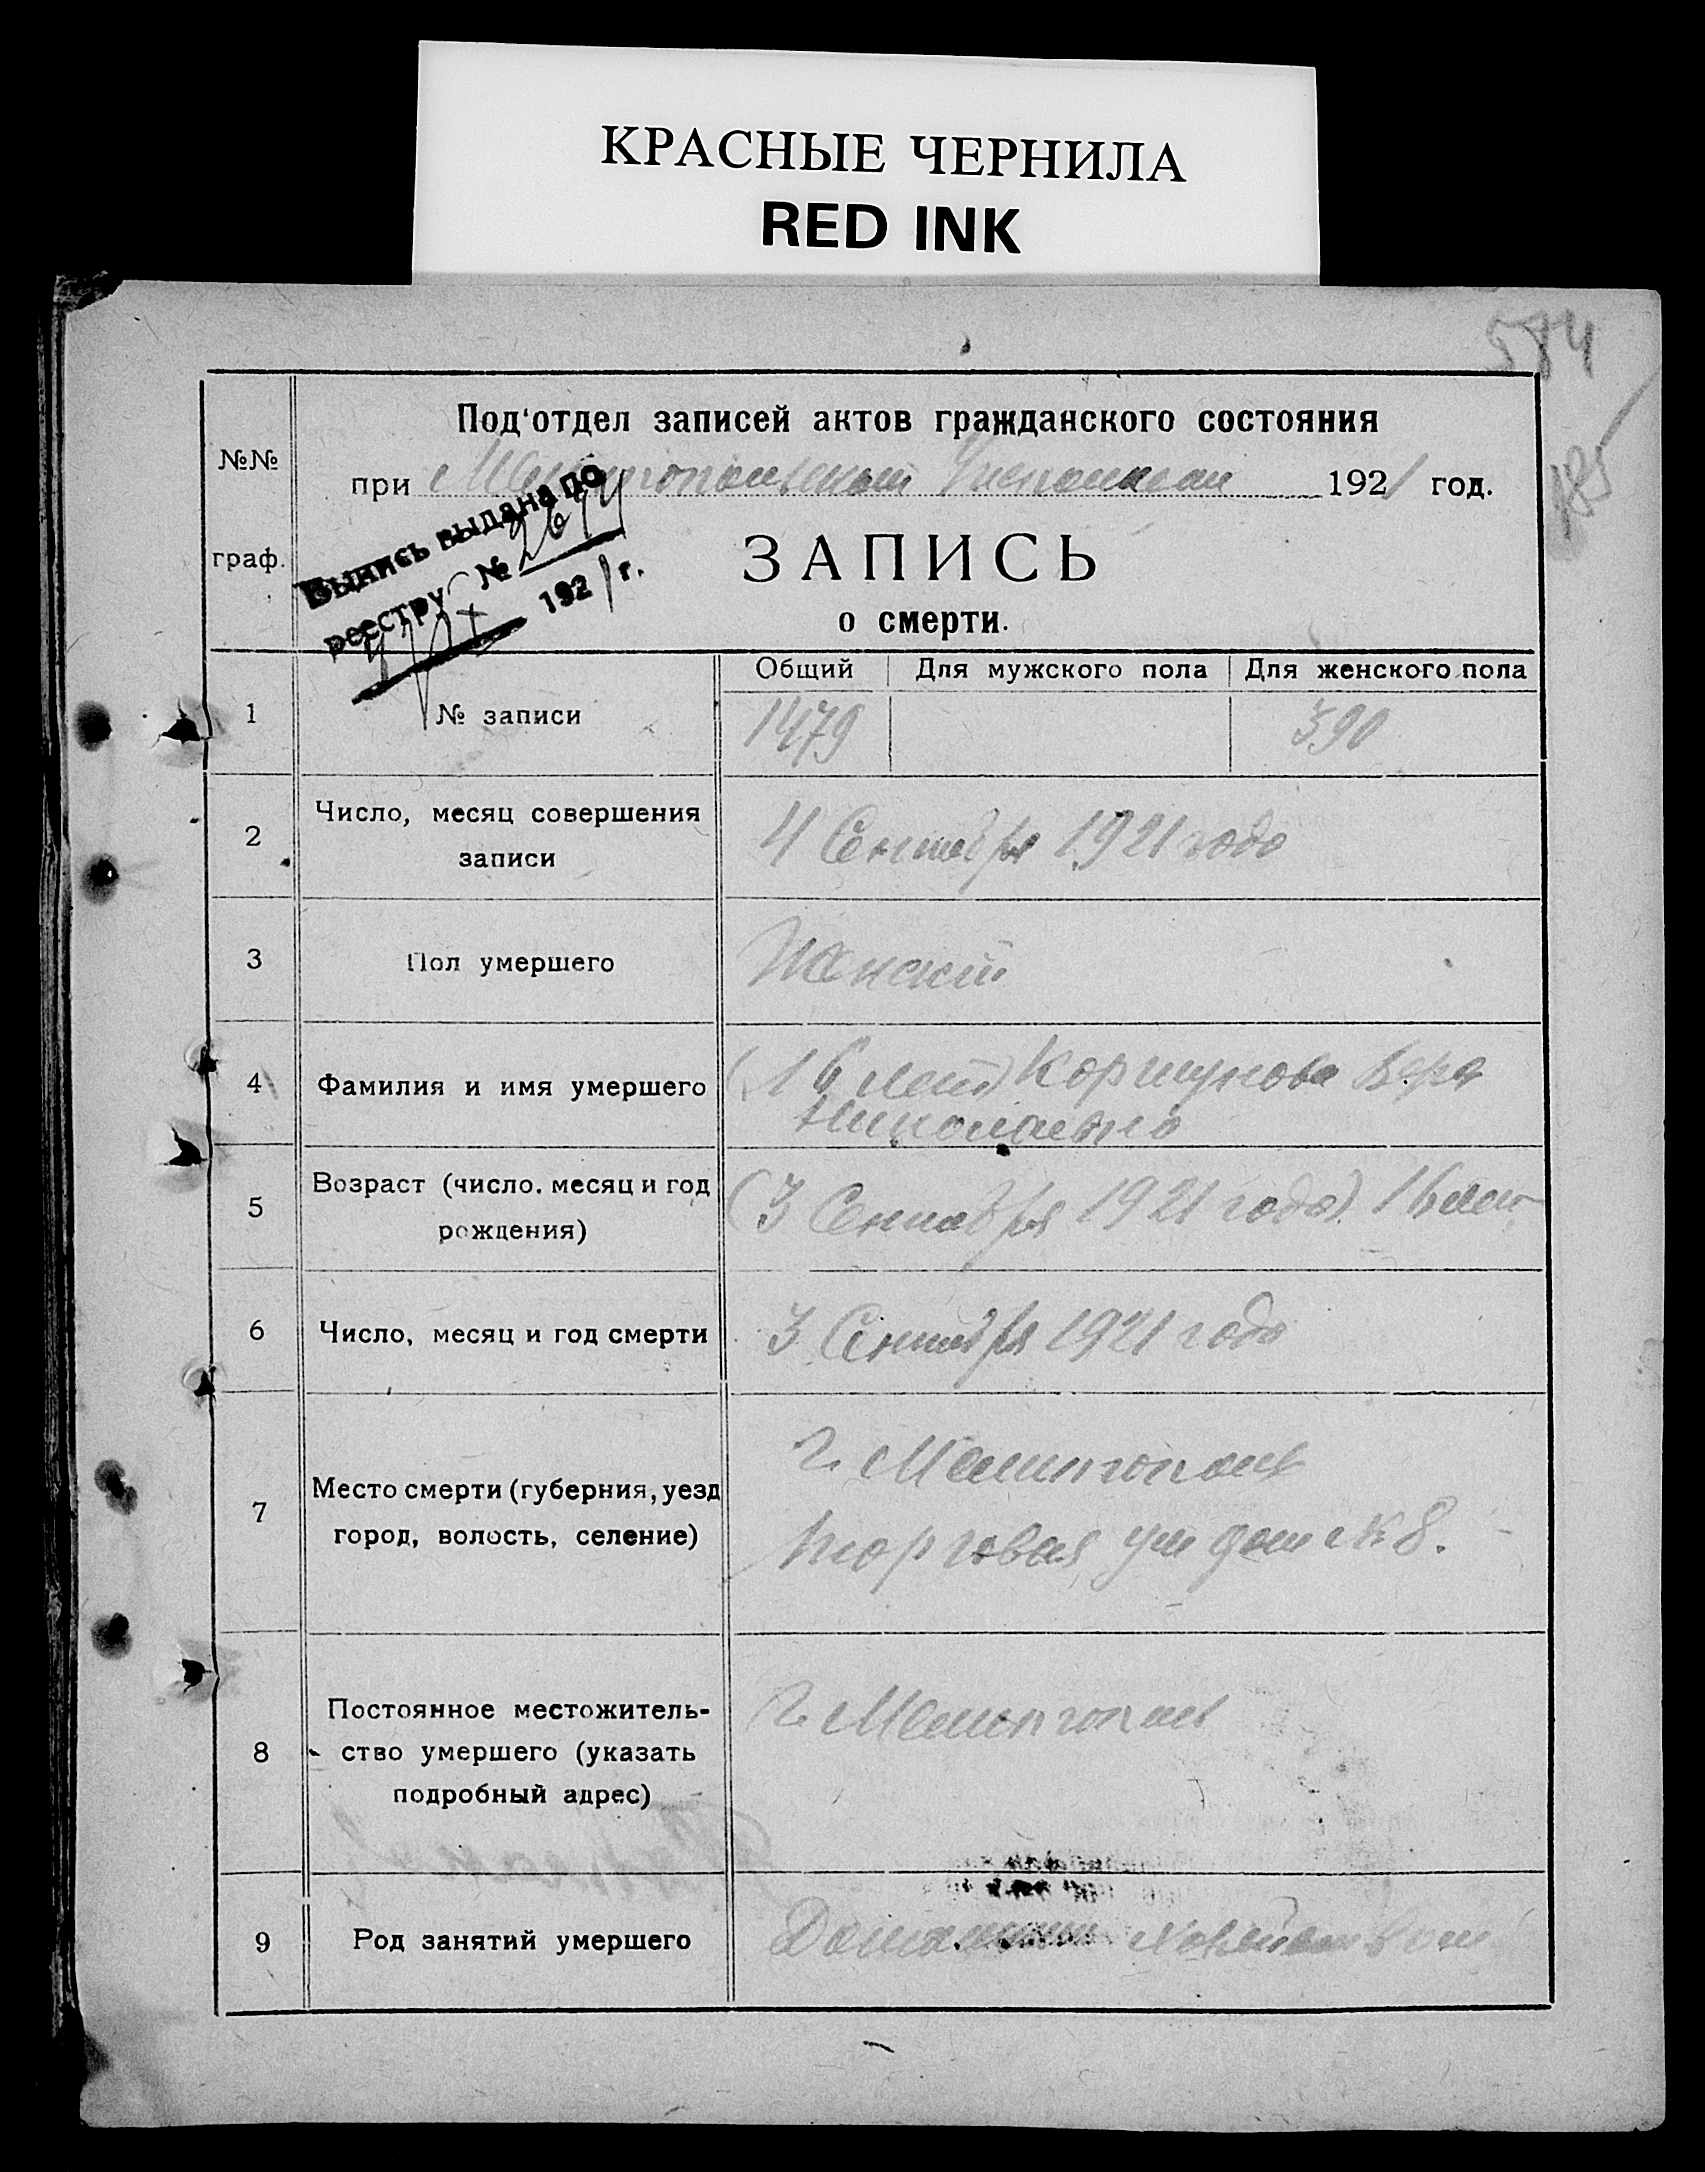 КРАСНЫЕ ЧЕРНИЛА
RED INK
584
485
Под'отдел записей актов гражданского состояния
№№
при Мелитопольском 1921 год.
граф.
Выпись выдана по
реестру № 2644
1921 г.
ЗАПИСЬ
о смерти.
Общий Для мужского пола Для женского пола
1 № записи 1479 590
2 Число, месяц совершения
записи
4 Сентября 1921 года
3 Пол умершего Женский
4 Фамилия и имя умершего (16 лет) Коршунова Вера
Николаевна
5 Возраст (число, месяц и год
рождения)
(3 Сентября 1921 года) 16 лет
6 Число, месяц и год смерти 3 Сентября 1921 года
7 Место смерти (губерния, уезд
город, волость, селение)
г. Мелитополь
Торговая ул дом № 8.
8 Постоянное местожитель-
ство умершего (указать
подробный адрес)
г. Мелитополь
9 Род занятий умершего Домашним